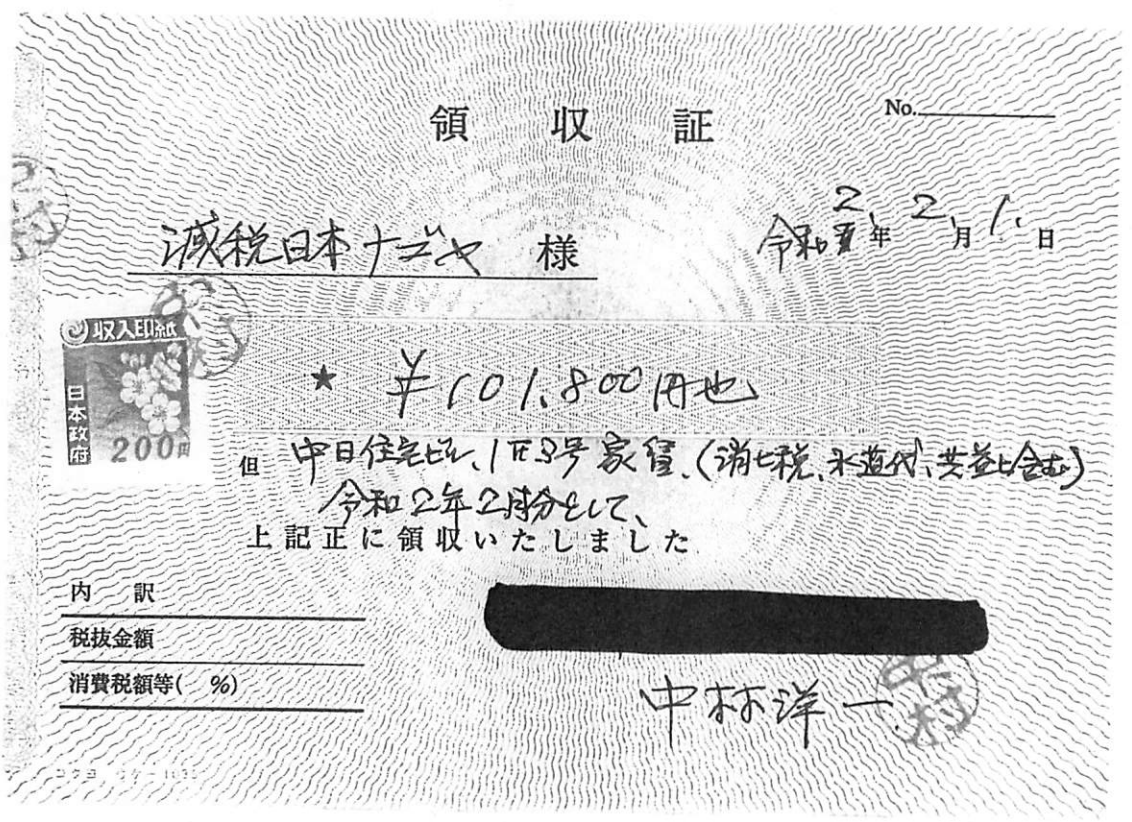 領収証
No.
減税日本ナゴヤ 様
令和2年2月1日
収入印紙
日本政府
200円
★ ¥101,800円也
但 中日住宅ビル、1F3号家賃、(消ヒ税、水道代、共益ヒ含む)
令和2年2月分として、
上記正に領収いたしました
内訳
税抜金額
消費税額等( %)
中村洋一
中村